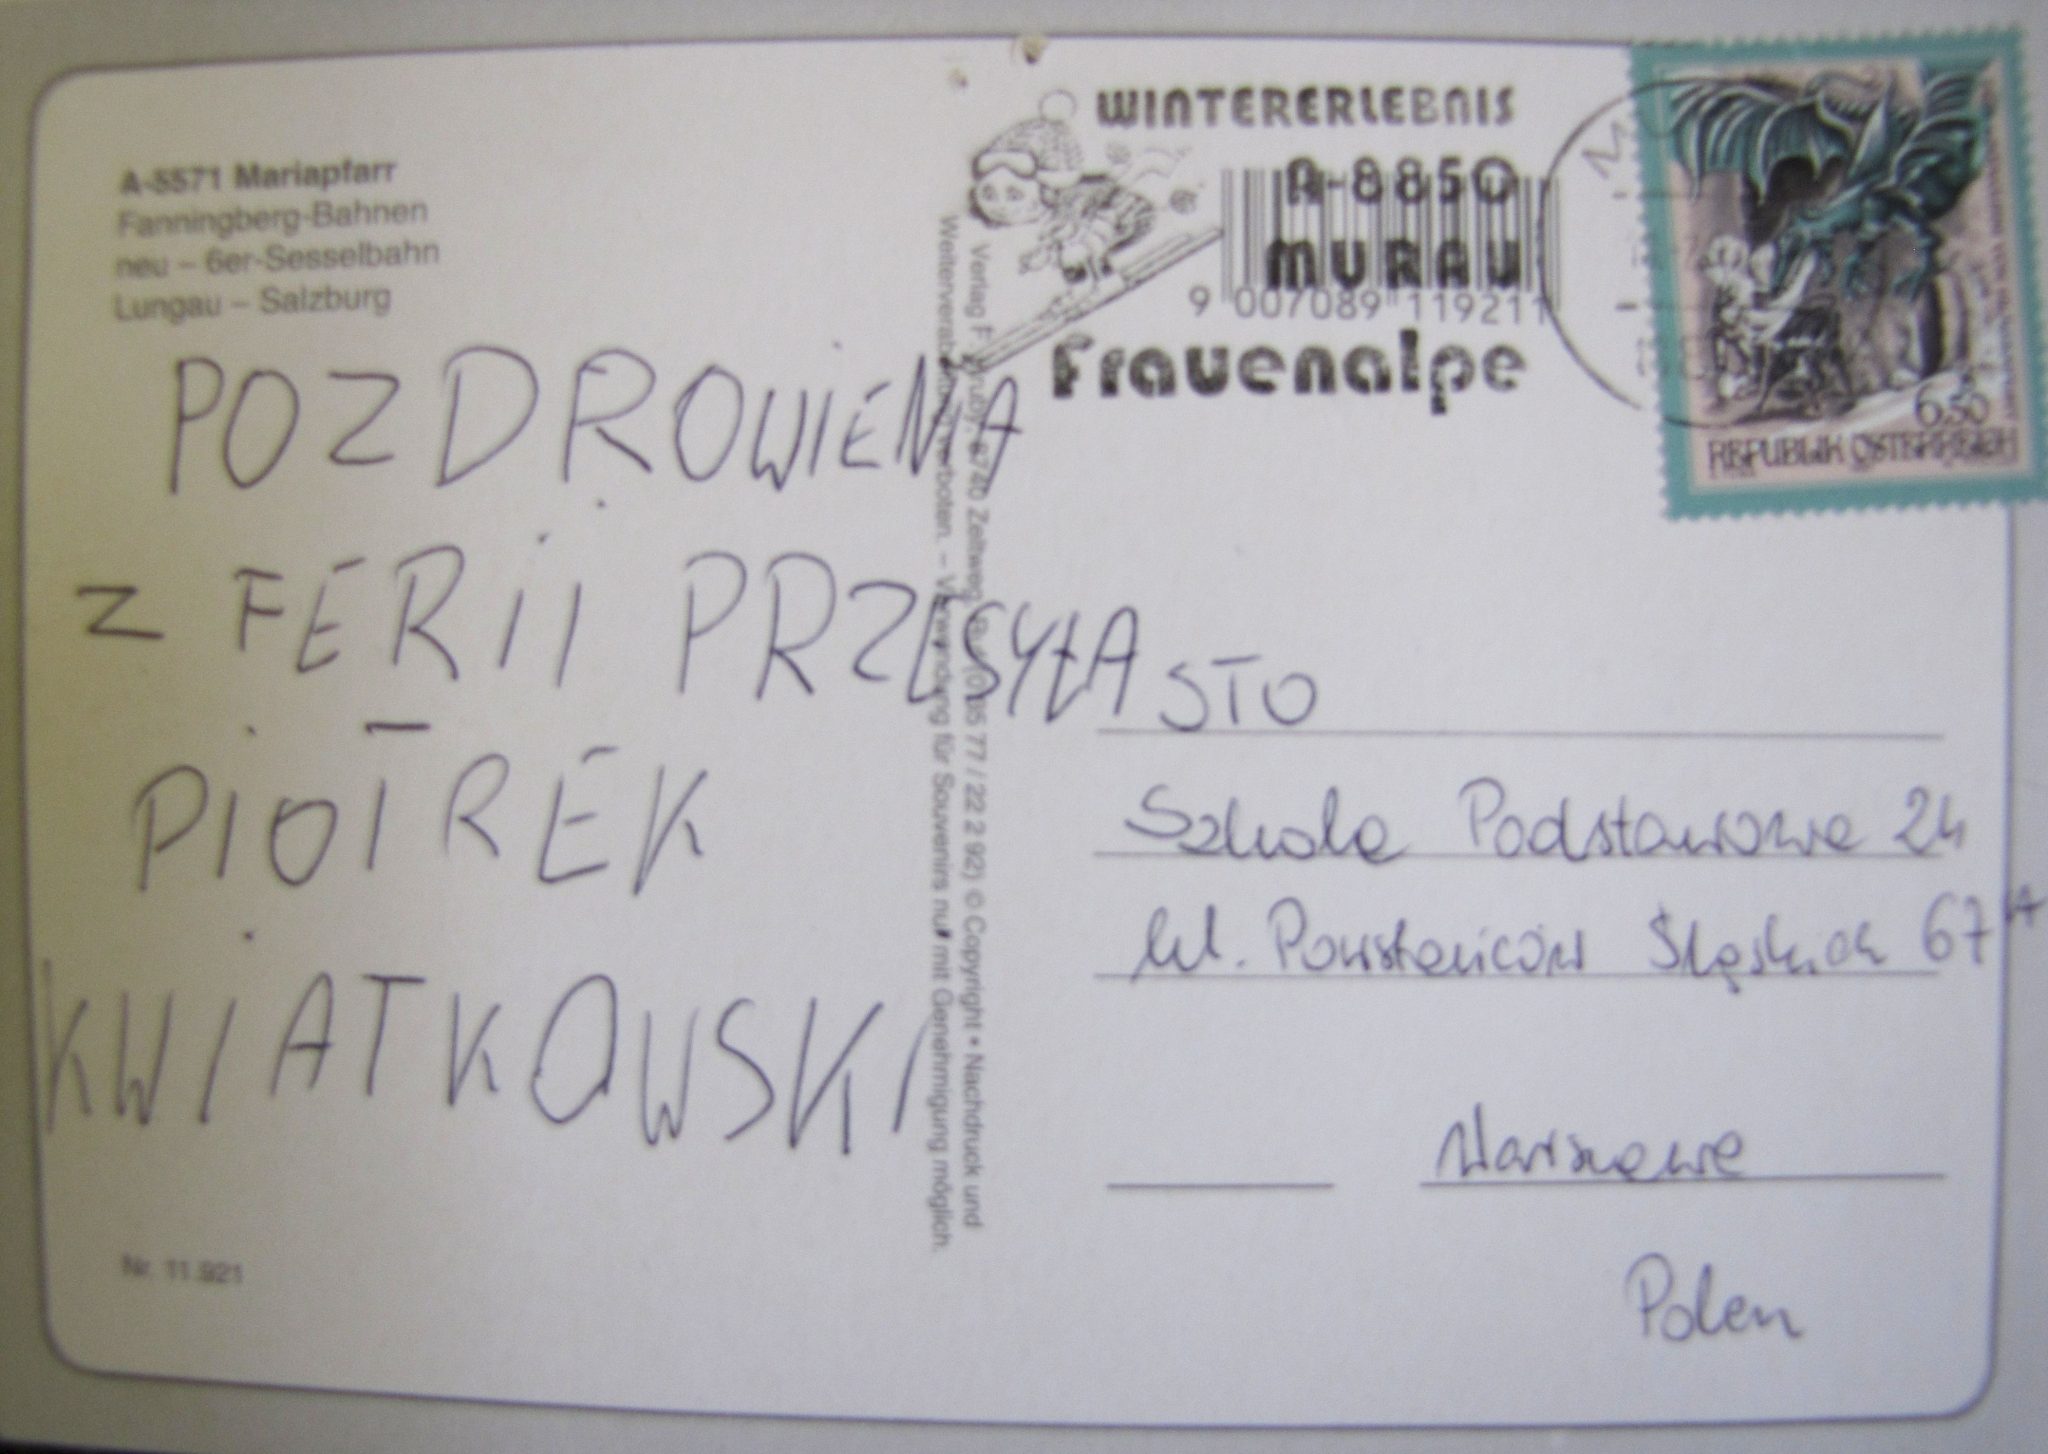 A-5571 Mariapfarr
Fanningberg-Bahnen
neu – 6er-Sesselbahn
Lungau – Salzburg
POZDROWIENA
Z FERII PRZESYŁA
PIOTREK
KWIATKOWSKI
Nr. 11.921
Verlag F. 8740 Zeltweg, (0 35 77 / 22 2 92) © Copyright • Nachdruck und
verboten. – Verwendung für Souvenirs nur mit Genehmigung möglich.
WINTERERLEBNIS
A-8850
MURAU
9 007089 119211
Frauenalpe
6.50
REPUBLIK ÖSTERREICH
STO
Szkoła Podstawowa 24
ul. Powstańców Śląskich 67A
Warszawa
Polen